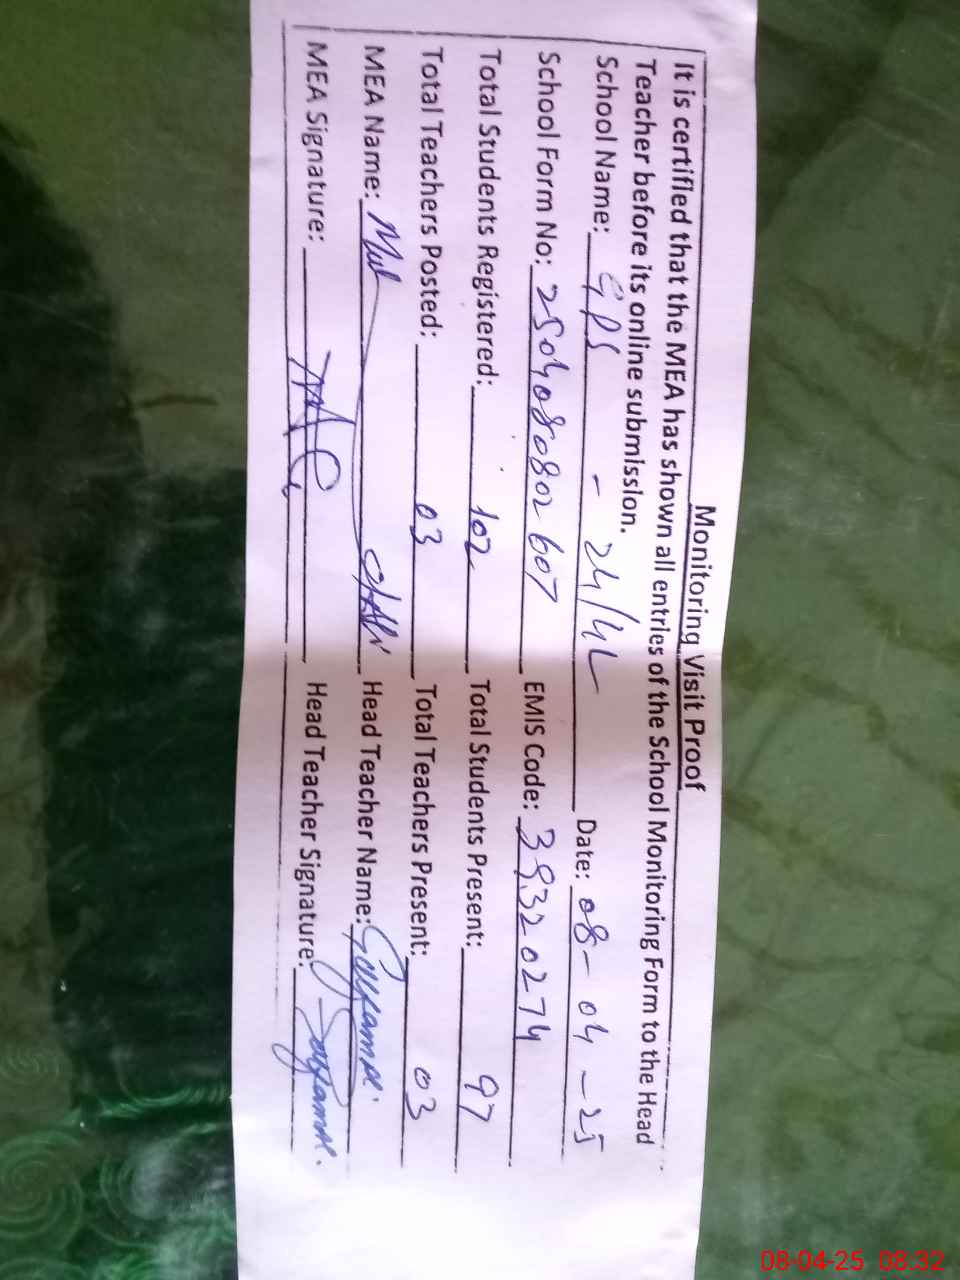 Monitoring Visit Proof
It is certified that the MEA has shown all entries of the School Monitoring Form to the Head
Teacher before its online submission.
School Name: GPS - 24/4L Date: 08-04-25
School Form No: 250408080 2607 EMIS Code: 39320274
Total Students Registered: 102 Total Students Present: 97
Total Teachers Posted: 03 Total Teachers Present: 03
MEA Name: Head Teacher Name:
MEA Signature: Head Teacher Signature:
08-04-25 08:32